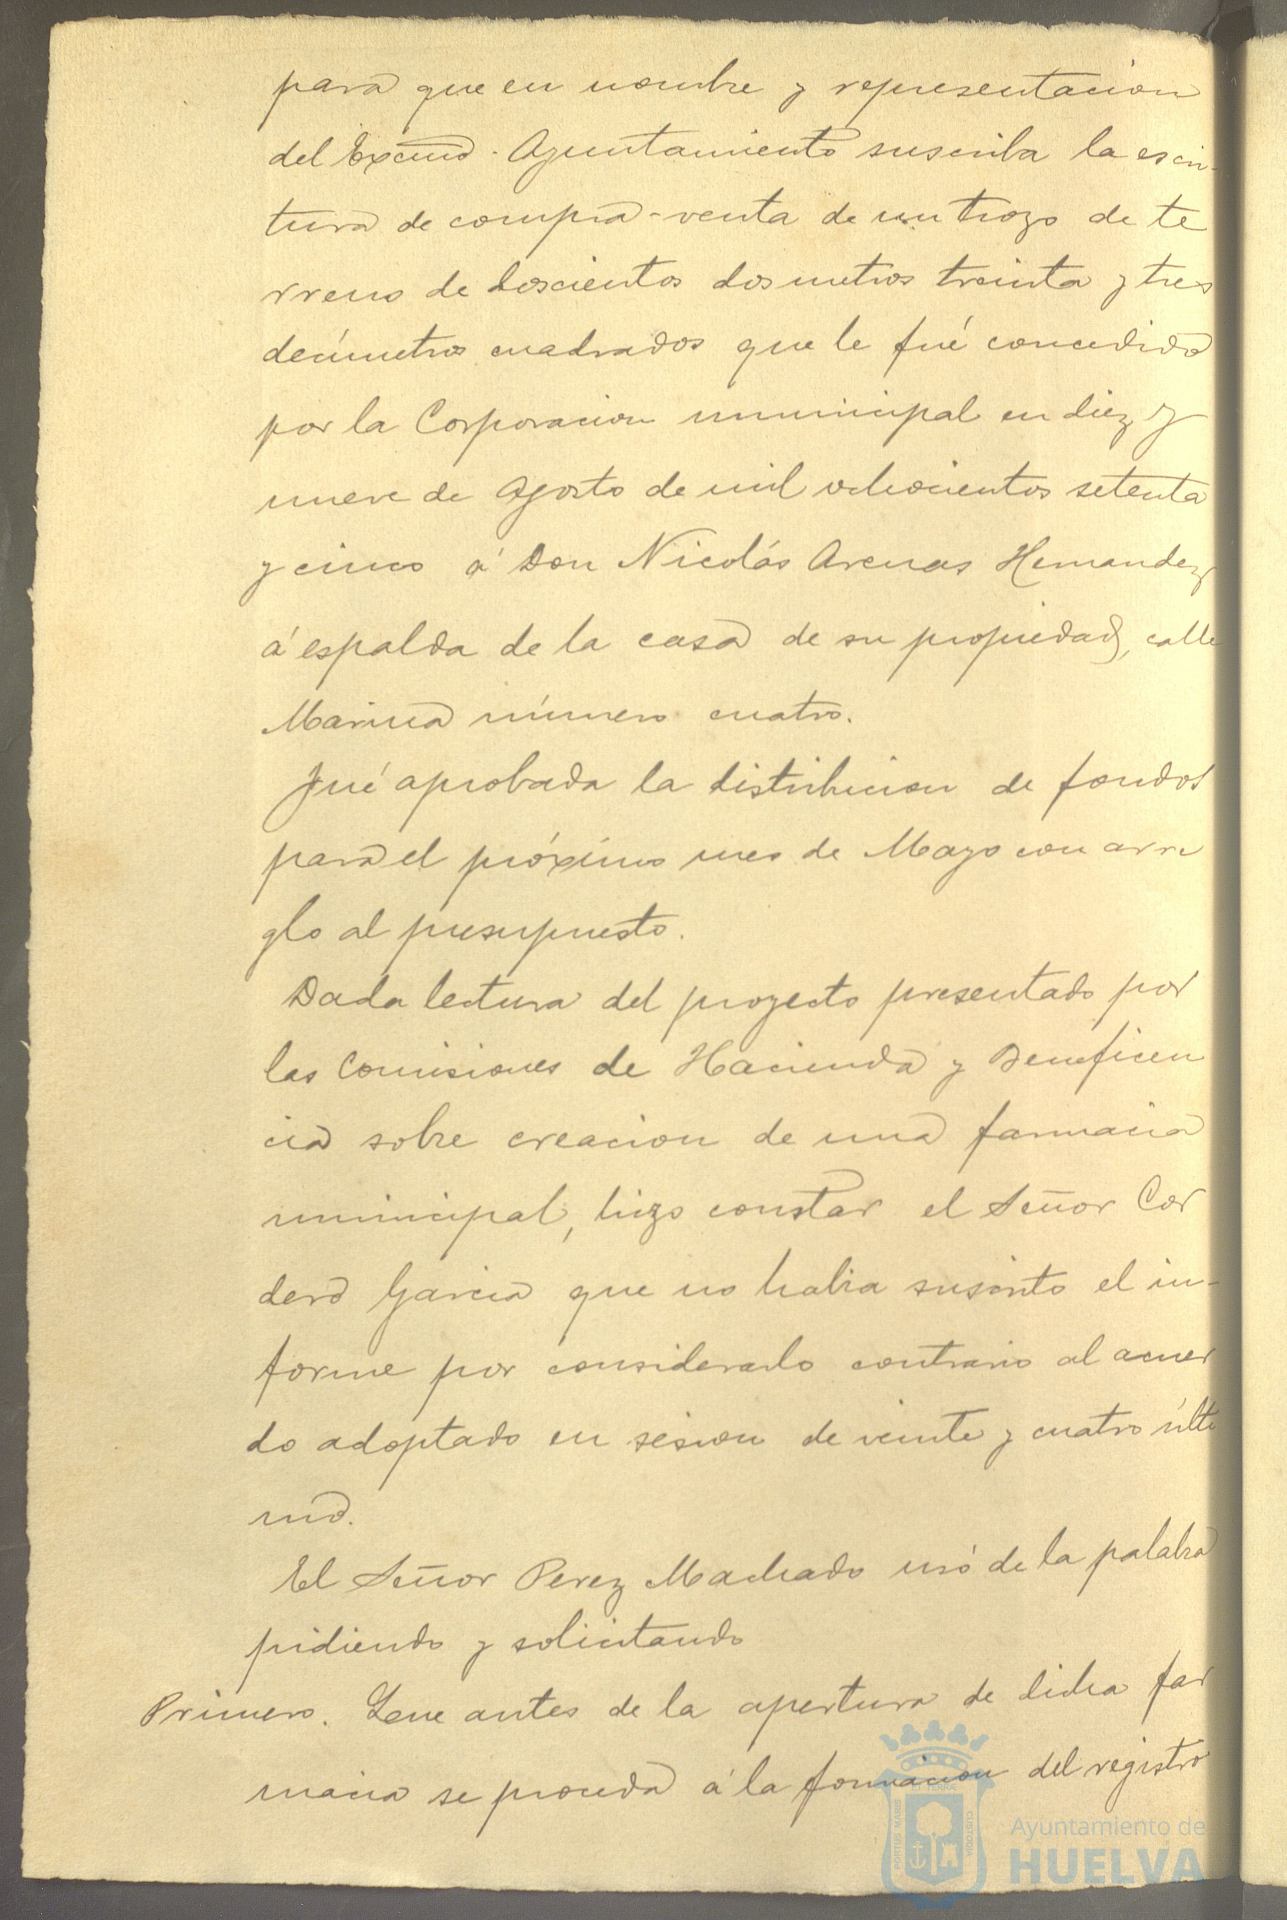 para que en nombre y representacion
del Excmo. Ayuntamiento suscriba la escri-
tura de compra-venta de un trozo de te
rreno de doscientos dos metros treinta y tres
decímetros cuadrados que le fué concedido
por la Corporacion municipal en diez y
nueve de Agosto de mil ochocientos setenta
y cinco á Don Nicolás Arenas Hernandez
á espalda de la casa de su propiedad, calle
Marina número cuatro.
Fué aprobada la distribucion de fondos
para el próximo mes de Mayo con arre
glo al presupuesto.
Dada lectura del proyecto presentado por
las Comisiones de Hacienda y Beneficen
cia sobre creacion de una farmacia
municipal, hizo constar el Señor Cor
dero Garcia que no habia suscrito el in-
forme por considerarlo contrario al acuer
do adoptado en sesion de veinte y cuatro últi
mo.
El Señor Perez Machado usó de la palabra
pidiendo y solicitando
Primero. Que antes de la apertura de dicha far
macia se proceda á la formacion del registro
PORTUS MARIS ET TERRAE CUSTODIA
Ayuntamiento de
HUELVA